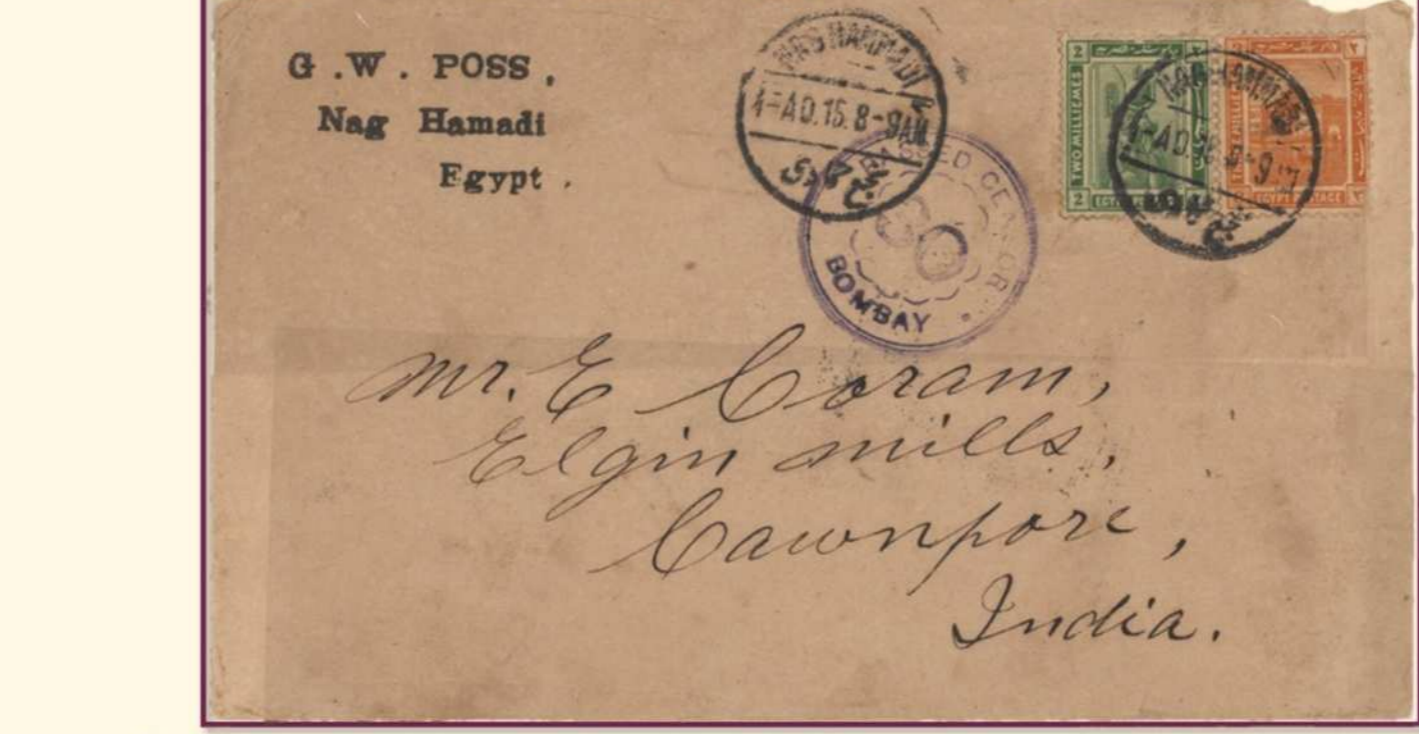 G.W. POSS,
Nag Hamadi
Egypt.
NAG HAMADI
4-AO.15.8-9AM
PASSED CENSOR
60
BOMBAY
2
TWO MILLIEMES
2
EGYPT POSTAGE
Mr. E Coram,
Elgin mills,
Cawnpore,
India.